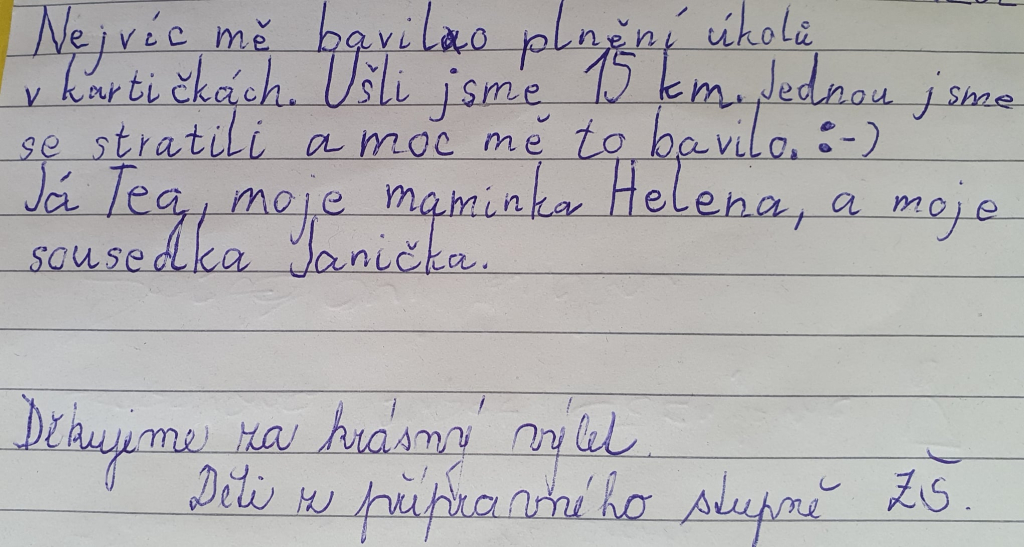 Nejvíc mě bavilo plnění úkolů
v kartičkách. Ušli jsme 15 km. Jednou jsme
se stratili a moc mě to bavilo. :-)
Já Tea, moje maminka Helena, a moje
sousedka Janička.
Děkujeme za krásný výlet.
Děti z přípravného stupně ZŠ.